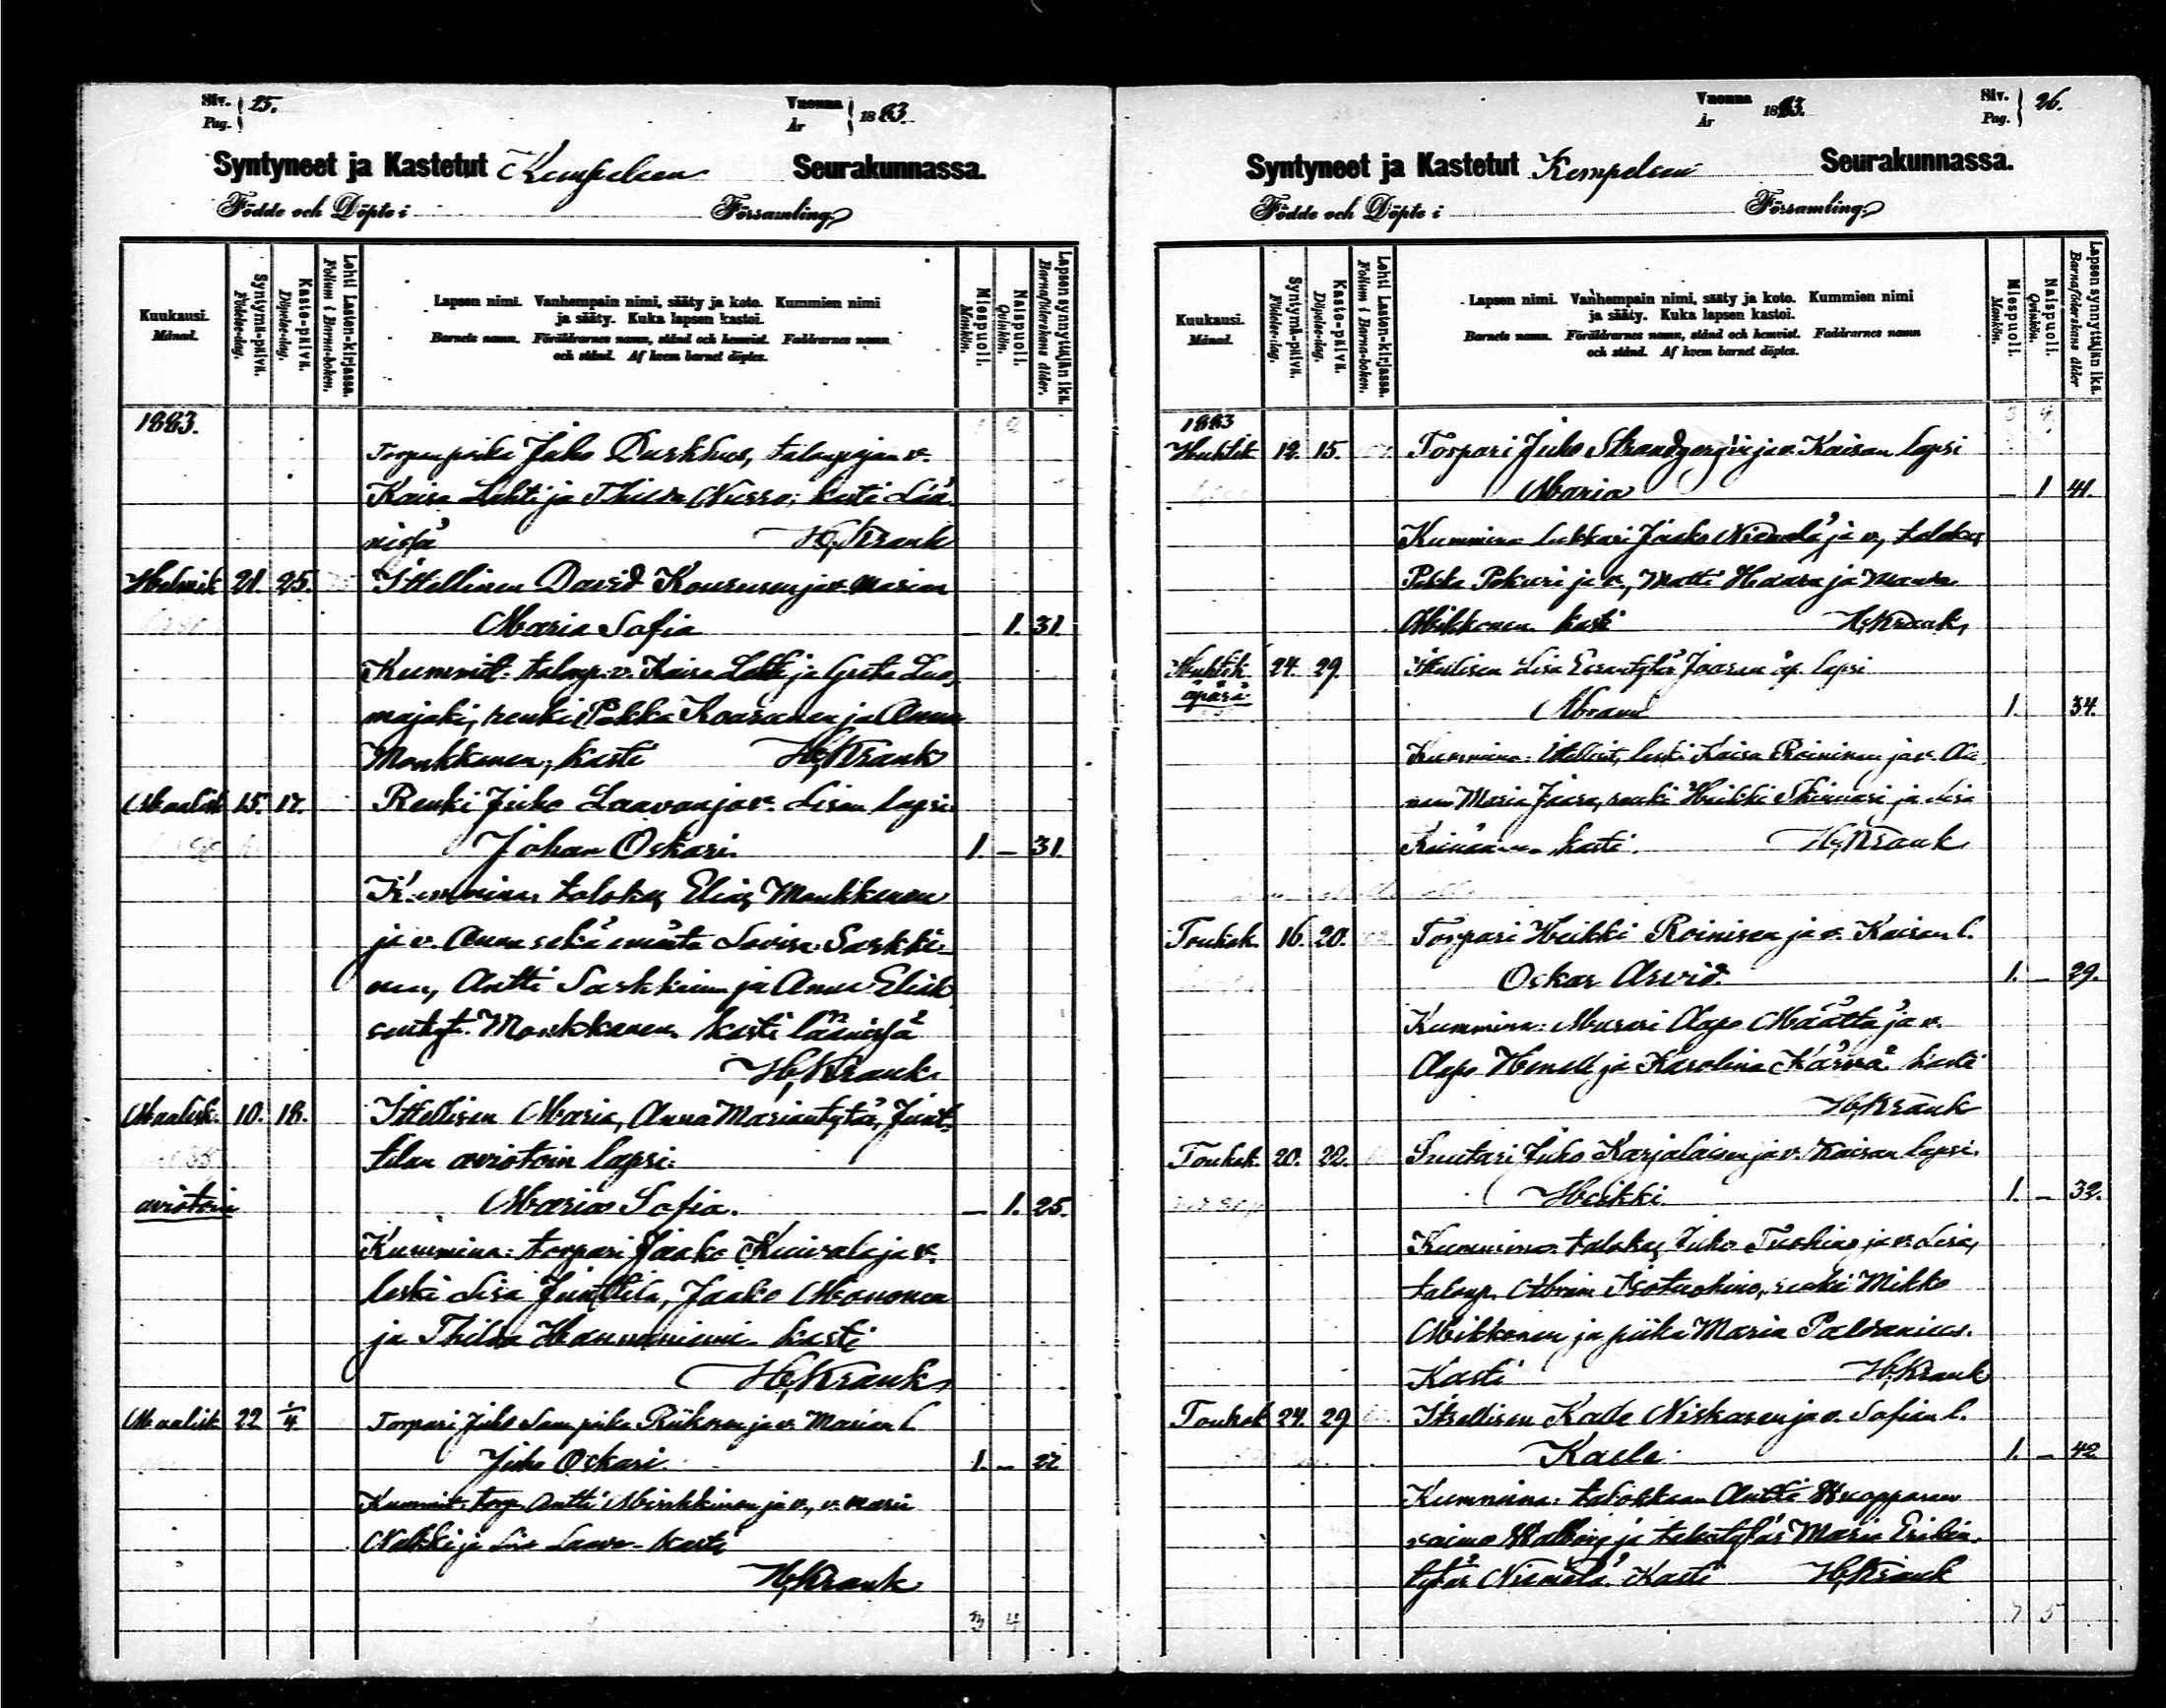 Siv. 25.
Pag.
Vuonna 1883.
År
Syntyneet ja Kastetut Kempeleen Seurakunnassa.
Födde och Döpte i Församling.
Kuukausi.
Månad.
Syntymä-päivä.
Födelse-dag.
Kasto-päivä.
Döpelse-dag.
Lehti Lasten-kirjassa.
Folium i Barna-boken.
Lapsen nimi. Vanhempain nimi, sääty ja koto. Kummien nimi
ja sääty. Kuka lapsen kastoi.
Barnets namn. Föräldrarnes namn, stånd och hemvist. Faddrarnes namn
och stånd. Af hvem barnet döptes.
Miespuoli.
Mankön.
Naispuoli.
Qvinkön.
Lapsen synnyttäjän ikä.
Barnaföderskans ålder.
1883.
Juho Durkhus, talonpojan v.
Kaisa Lehti ja Thilda kasti Lää-
nissä H. Krank
Helmik 21. 25. Ittellinen David Kourusen ja v. Marian
Maria Sofia — 1. 31
Kummit: talonp. v. Kaisa Lehti ja Greta Luo-
majoki, renki Pekka ja Anna
Monkkonen, kasti H. Krank
Maalisk 15. 17. Renki Juho Laavan ja v. Lisan lapsi
Johan Oskari. 1. — 31.
Kummina, talokas Elias Monkkonen
ja v. Anna sekä emäntä Lovisa Sarkki-
nen, Antti Sarkkinen ja Anna Eliak-
sentyt. Monkkonen. kasti läänissä
H. Krank
Maalisk. 10. 18. Ittellisen Maria, Anna Mariantytär, Junt-
tilan aviotoin lapsi:
aviotoin Maria Sofia. — 1. 25.
Kummina: torpari Jaako Kuivala ja v.
leski Lisa Junttila, Jaako Mononen
ja Thilda Hannuniemi kasti
H. Krank
Maalisk 22 1/4 Torpari Juho Riikosen ja v. Marian l.
Juho Oskari. 1. — 22
Kummit: torp. Antti ja v., v. Maria
ja Lisa Laava. kasti
H. Krank
3 4
Vuonna 1883.
År
Siv. 26.
Pag.
Syntyneet ja Kastetut Kempeleen Seurakunnassa.
Födde och Döpte i Församling.
Kuukausi.
Månad.
Syntymä-päivä.
Födelse-dag.
Kasto-päivä.
Döpelse-dag.
Lehti Lasten-kirjassa.
Folium i Barna-boken.
Lapsen nimi. Vanhempain nimi, sääty ja koto. Kummien nimi
ja sääty. Kuka lapsen kastoi.
Barnets namn. Föräldrarnes namn, stånd och hemvist. Faddrarnes namn
och stånd. Af hvem barnet döptes.
Miespuoli.
Mankön.
Naispuoli.
Qvinkön.
Lapsen synnyttäjän ikä.
Barnaföderskans ålder
1883
Huhtik 12. 15. Torpari Juho ja v. Kaisan lapsi
Maria — 1 41.
Kummina lukkari Jaako Niemelä ja v., talokas
Pekka Pekuri ja v., Matti ja
Mikkonen kasti H. Krank
Huhtik 24. 29. Lisa Jaaran äp. lapsi
äpärä Abram 1. 34.
Kummina: Itellist. leski Kaisa Roininen ja v.
Maria Jaara, renki Heikki ja Lisa
kasti. H. Krank
Toukok. 16. 20. Torpari Heikki Roinisen ja v. Kaisan l.
Oskar Arvid. 1. — 29.
Kummina: Murari Aapo Määttä ja v.
Aapo ja Karolina Kärnä. kasti
H. Krank
Toukok. 20. 22. Suutari Juho Karjalaisen ja v. Kaisan lapsi.
Heikki. 1. — 32.
Kummina talokas Juho Tuohino ja v. Lisa,
talonp. Abram Isotuohino, renki Mikko
Mikkonen ja piika Maria
Kasti H. Krank
Toukok 24. 29 Itsellisen Kalle Niskasen ja v. Sofian l.
Kalle 1. — 42
Kummina: talokkaan Antti
vaimo Walborg ja talontytär Maria Erikin-
tytär Niemelä. Kasti H. Krank
7 5